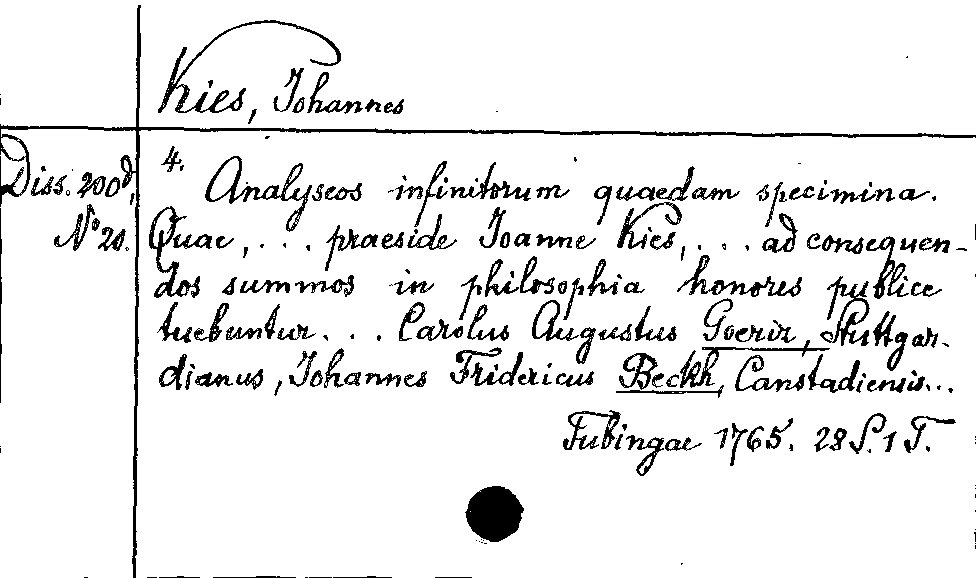 Kies, Johannes
Diss. 200d,
N° 20.
4. Analyseos infinitorum quaedam specimina.
Quae, . . . praeside Joanne Kies, . . . ad consequen-
dos summos in philosophia honores publice
tuebuntur . . . Carolus Augustus Goeriz, Stuttgar-
dianus, Johannes Fridericus Beckh, Canstadiensis...
Tubingae 1765. 28 S. 1 T.